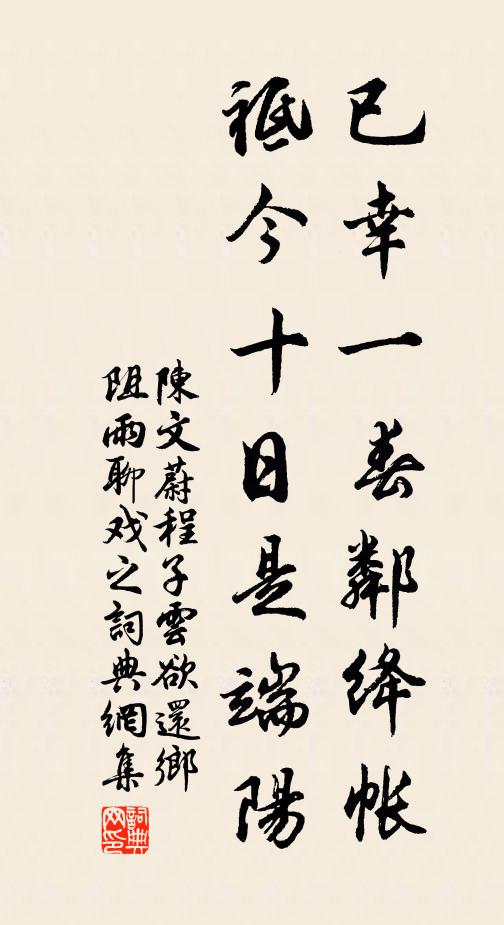 已幸一春鄰絳帐
祗今十日是端陽
陳文蔚程子雲欲還鄉
阻雨聊戏之詞典網集
詞典网印